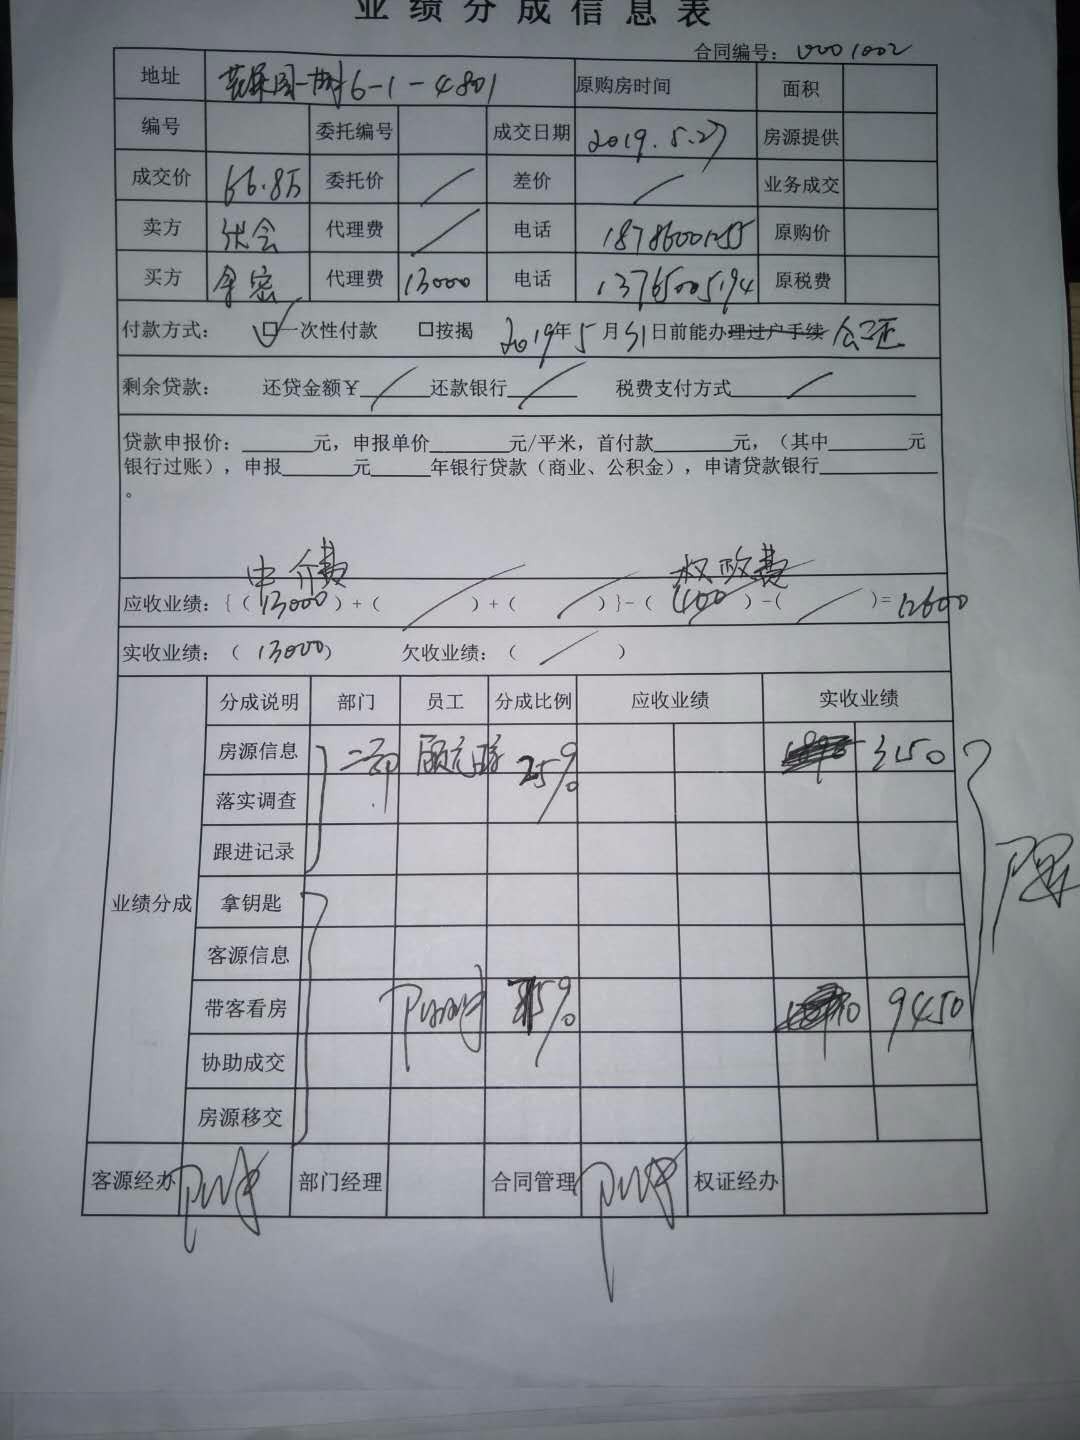 业绩分成信息表
合同编号: 0001002
地址 花果园 6-1-4801 原购房时间 面积
编号 委托编号 成交日期 2019.5.27 房源提供
成交价 66.8万 委托价 / 差价 / 业务成交
卖方 代理费 / 电话 原购价
买方 代理费 13000 电话 13765005194 原税费
付款方式: ☑一次性付款 □按揭 2019年5月31日前能办理过户手续 公证
剩余贷款: 还贷金额￥ / 还款银行 / 税费支付方式 /
贷款申报价:______元，申报单价______元/平米，首付款______元，（其中______元
银行过账），申报______元______年银行贷款（商业、公积金），申请贷款银行______
。
中介费 权政费
应收业绩:{（13000）+（ / ）+（ / ）}-（400）-（ / ）=12600
实收业绩:（13000） 欠收业绩:（ / ）
业绩分成 分成说明 部门 员工 分成比例 应收业绩 实收业绩
房源信息 二部 25% 3150
落实调查
跟进记录
拿钥匙
客源信息
带客看房 75% 9450
协助成交
房源移交
客源经办 部门经理 合同管理 权证经办